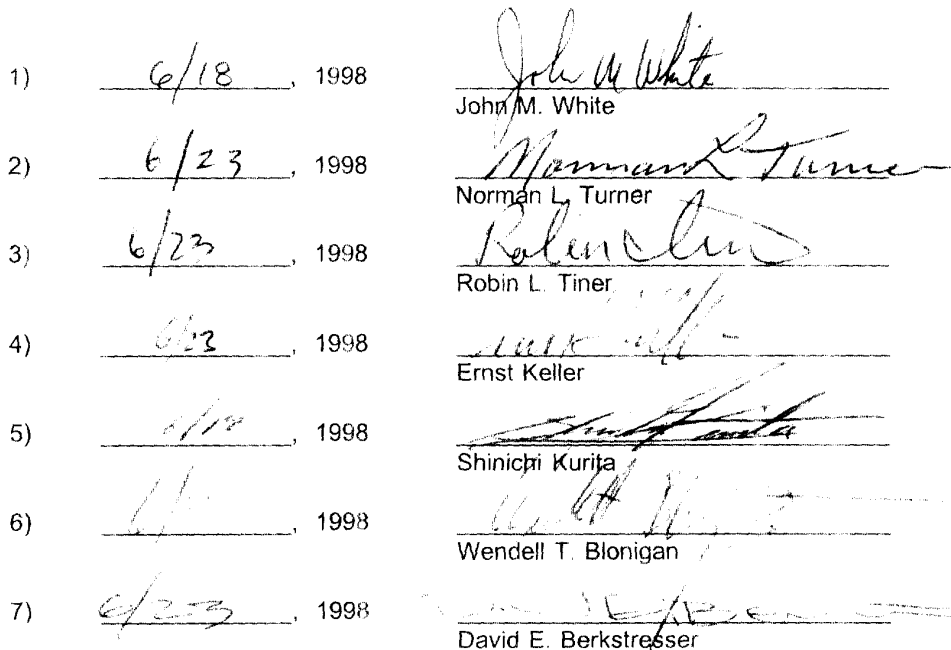 1) 6/18, 1998 John M White
John M. White
2) 6/23, 1998 Norman L Turner
Norman L. Turner
3) 6/23, 1998 Robin
Robin L. Tiner
4) 6/23, 1998
Ernst Keller
5) , 1998
Shinichi Kurita
6) 6/ , 1998
Wendell T. Blonigan
7) 6/23, 1998
David E. Berkstresser